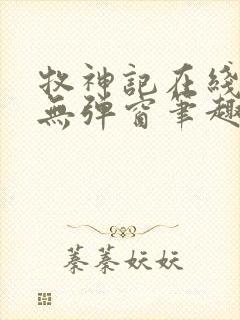 牧神記在綫
無彈窗筆趣
蓁蓁妖妖